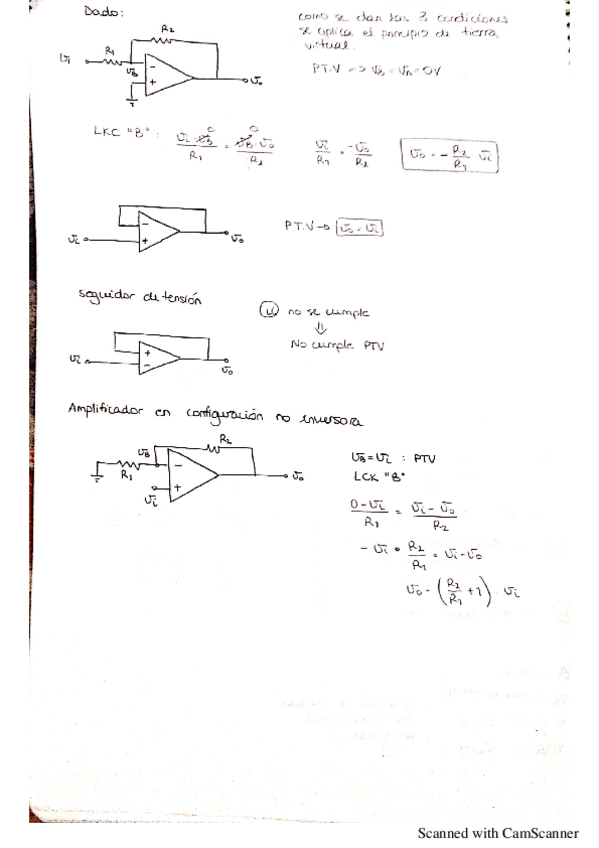 Dado:
como se dan las 3 condiciones
se aplica el principio de tierra
virtual.
R2
R1
Vi
VB
-
+
Vo
P.T.V -> VB = VA = 0V
LKC "B" : (Vi - VB)/R1 = (VB - Vo)/R2    Vi/R1 = -Vo/R2    Vo = - R2/R1 Vi
0 0
-
+
Vi
Vo
P.T.V -> Vo = Vi
seguidor de tensión
no se cumple
⇓
No cumple PTV
+
-
Vi
Vo
Amplificador en configuración no inversora
R2
VB
R1
-
+
Vi
Vo
VB = Vi : PTV
LCK "B"
(0 - Vi)/R1 = (Vi - Vo)/R2
- Vi • R2/R1 = Vi - Vo
Vo - (R2/R1 + 1) Vi
Scanned with CamScanner